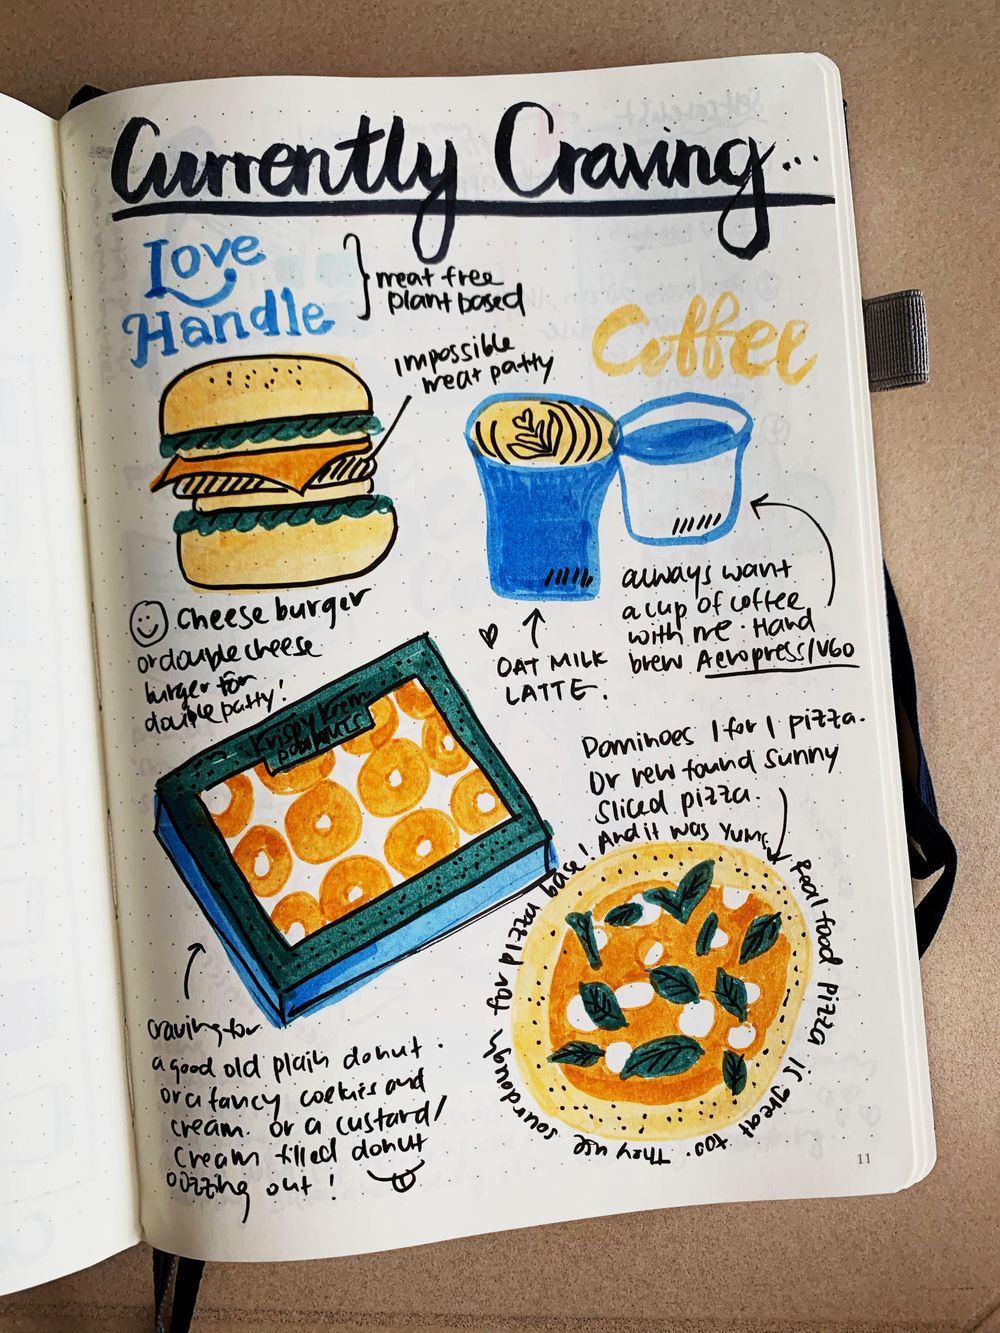 Currently Craving...
Love
Handle
meat free
plant based
impossible
meat patty
Coffee
Cheese burger
or double cheese
burger for
double patty!
OAT MILK
LATTE.
always want
a cup of coffee
with me. Hand
brew Aeropress/V60
Krispy Kreme
Craving for
a good old plain donut.
or a fancy cookies and
cream. or a custard/
cream filled donut
oozzing out!
Dominoes 1 for 1 pizza.
Or new found Sunny
Sliced pizza.
And it was yums
Real food pizza is great too. They use sourdough for pizza base!
11